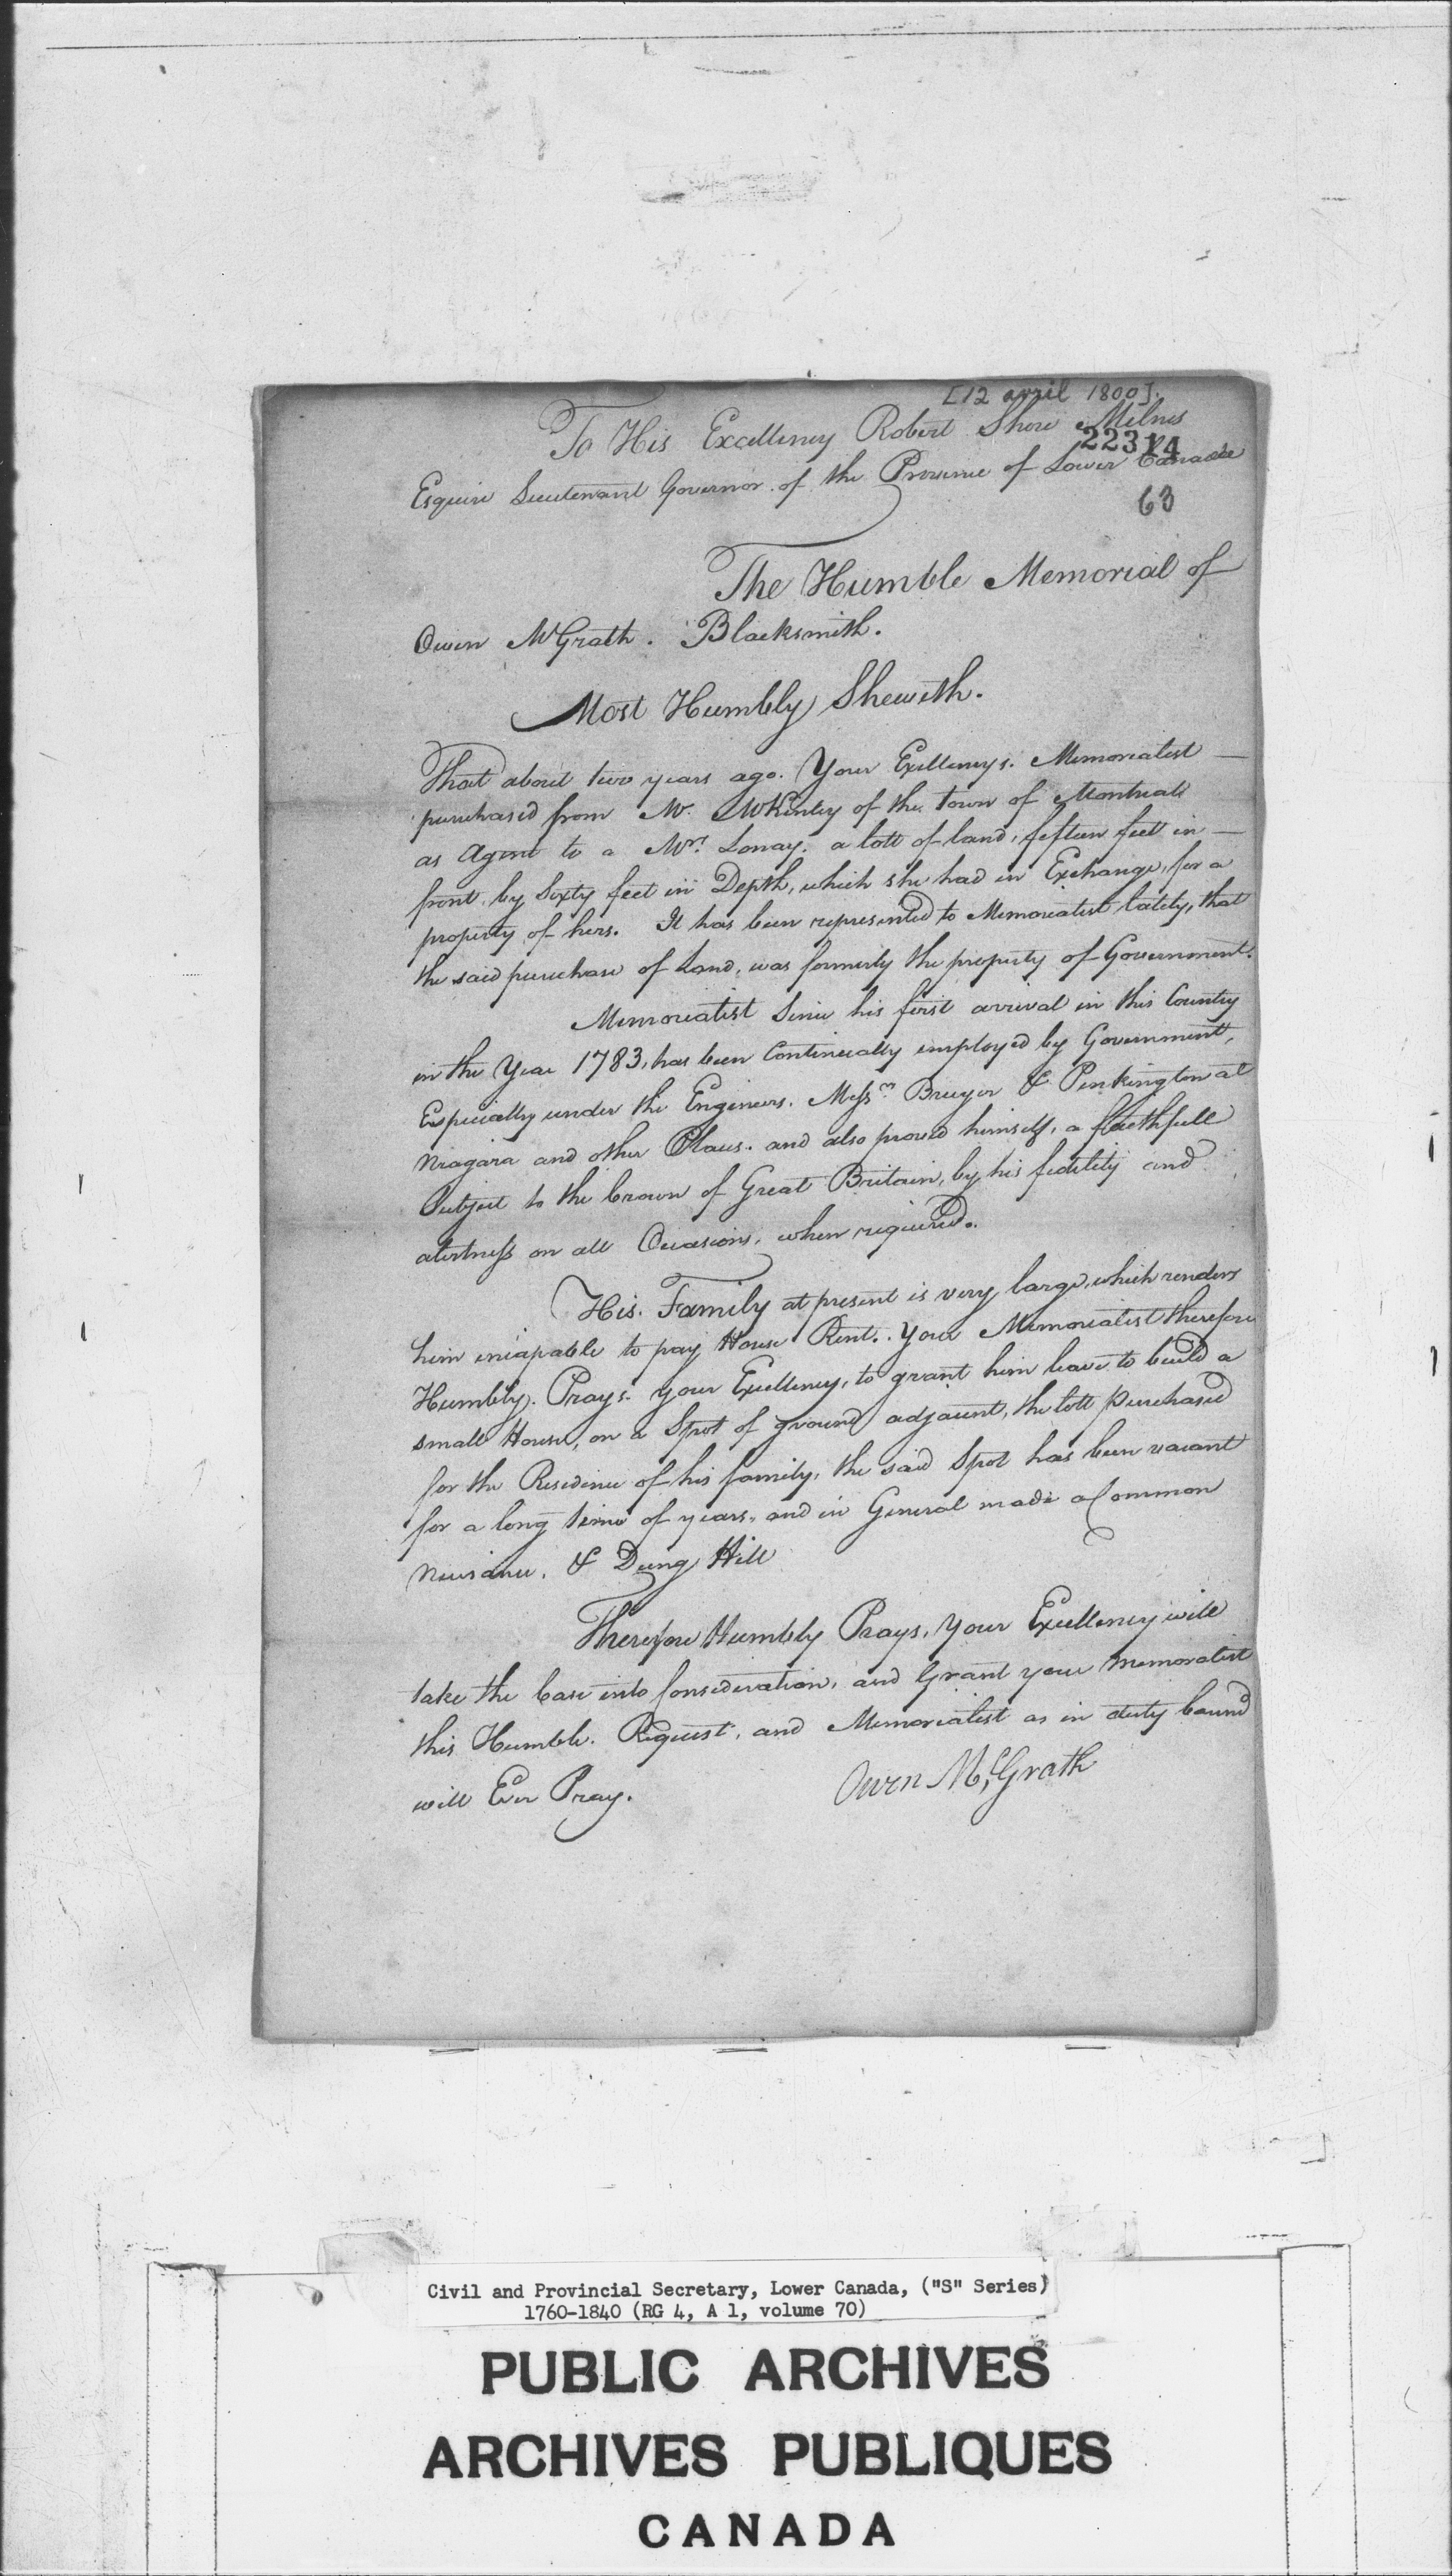 [12 avril 1800].
To His Excellency Robert Shore Milnes
22314
Esquire Lieutenant Governor of the Province of Lower Canada
63
The Humble Memorial of
Owen McGrath. Blacksmith.
Most Humbly Sheweth.
That about two years ago. Your Exellencys. Memorialist —
purchased from Mr. McKinley of the town of Montreal
as Agent to a Mrs. Lonay. a lott of land, fifteen feet in —
front, by Sixty feet in Depth, which she had in Exchange, for a
property of hers. It has been represented to Memorialist lately, that
the said purchase of Land, was formerly the property of Government.
Memorialist Since his first arrival in this Country
in the Year 1783, has been Continually employed by Government,
Especially under the Engineers. Messrs Bruyer & Pinkington at
Niagara and other Places. and also proved himself, a faithfull
Subject to the Crown of Great Britain, by his fidelity and
alertness on all Occasions, when required.
His. Family at present is very large, which renders
him incapable to pay House Rent. Your Memorialist therefore
Humbly. Prays. your Excellency, to grant him leave to build a
small House, on a Spot of ground adjacent, the lott purchased
for the Residence of his family, the said Spot has been vacant
for a long time of years, and in General made a Common
Neusance. & Dung Hill
Therefore Humbly Prays, Your Excellency will
take the Case into Consideration, and Grant your Memorialist
this Humble. Request, and Memorialist as in duty bound
will Ever Pray.
Owen McGrath
Civil and Provincial Secretary, Lower Canada, ("S" Series)
1760-1840 (RG 4, A 1, volume 70)
PUBLIC ARCHIVES
ARCHIVES PUBLIQUES
CANADA